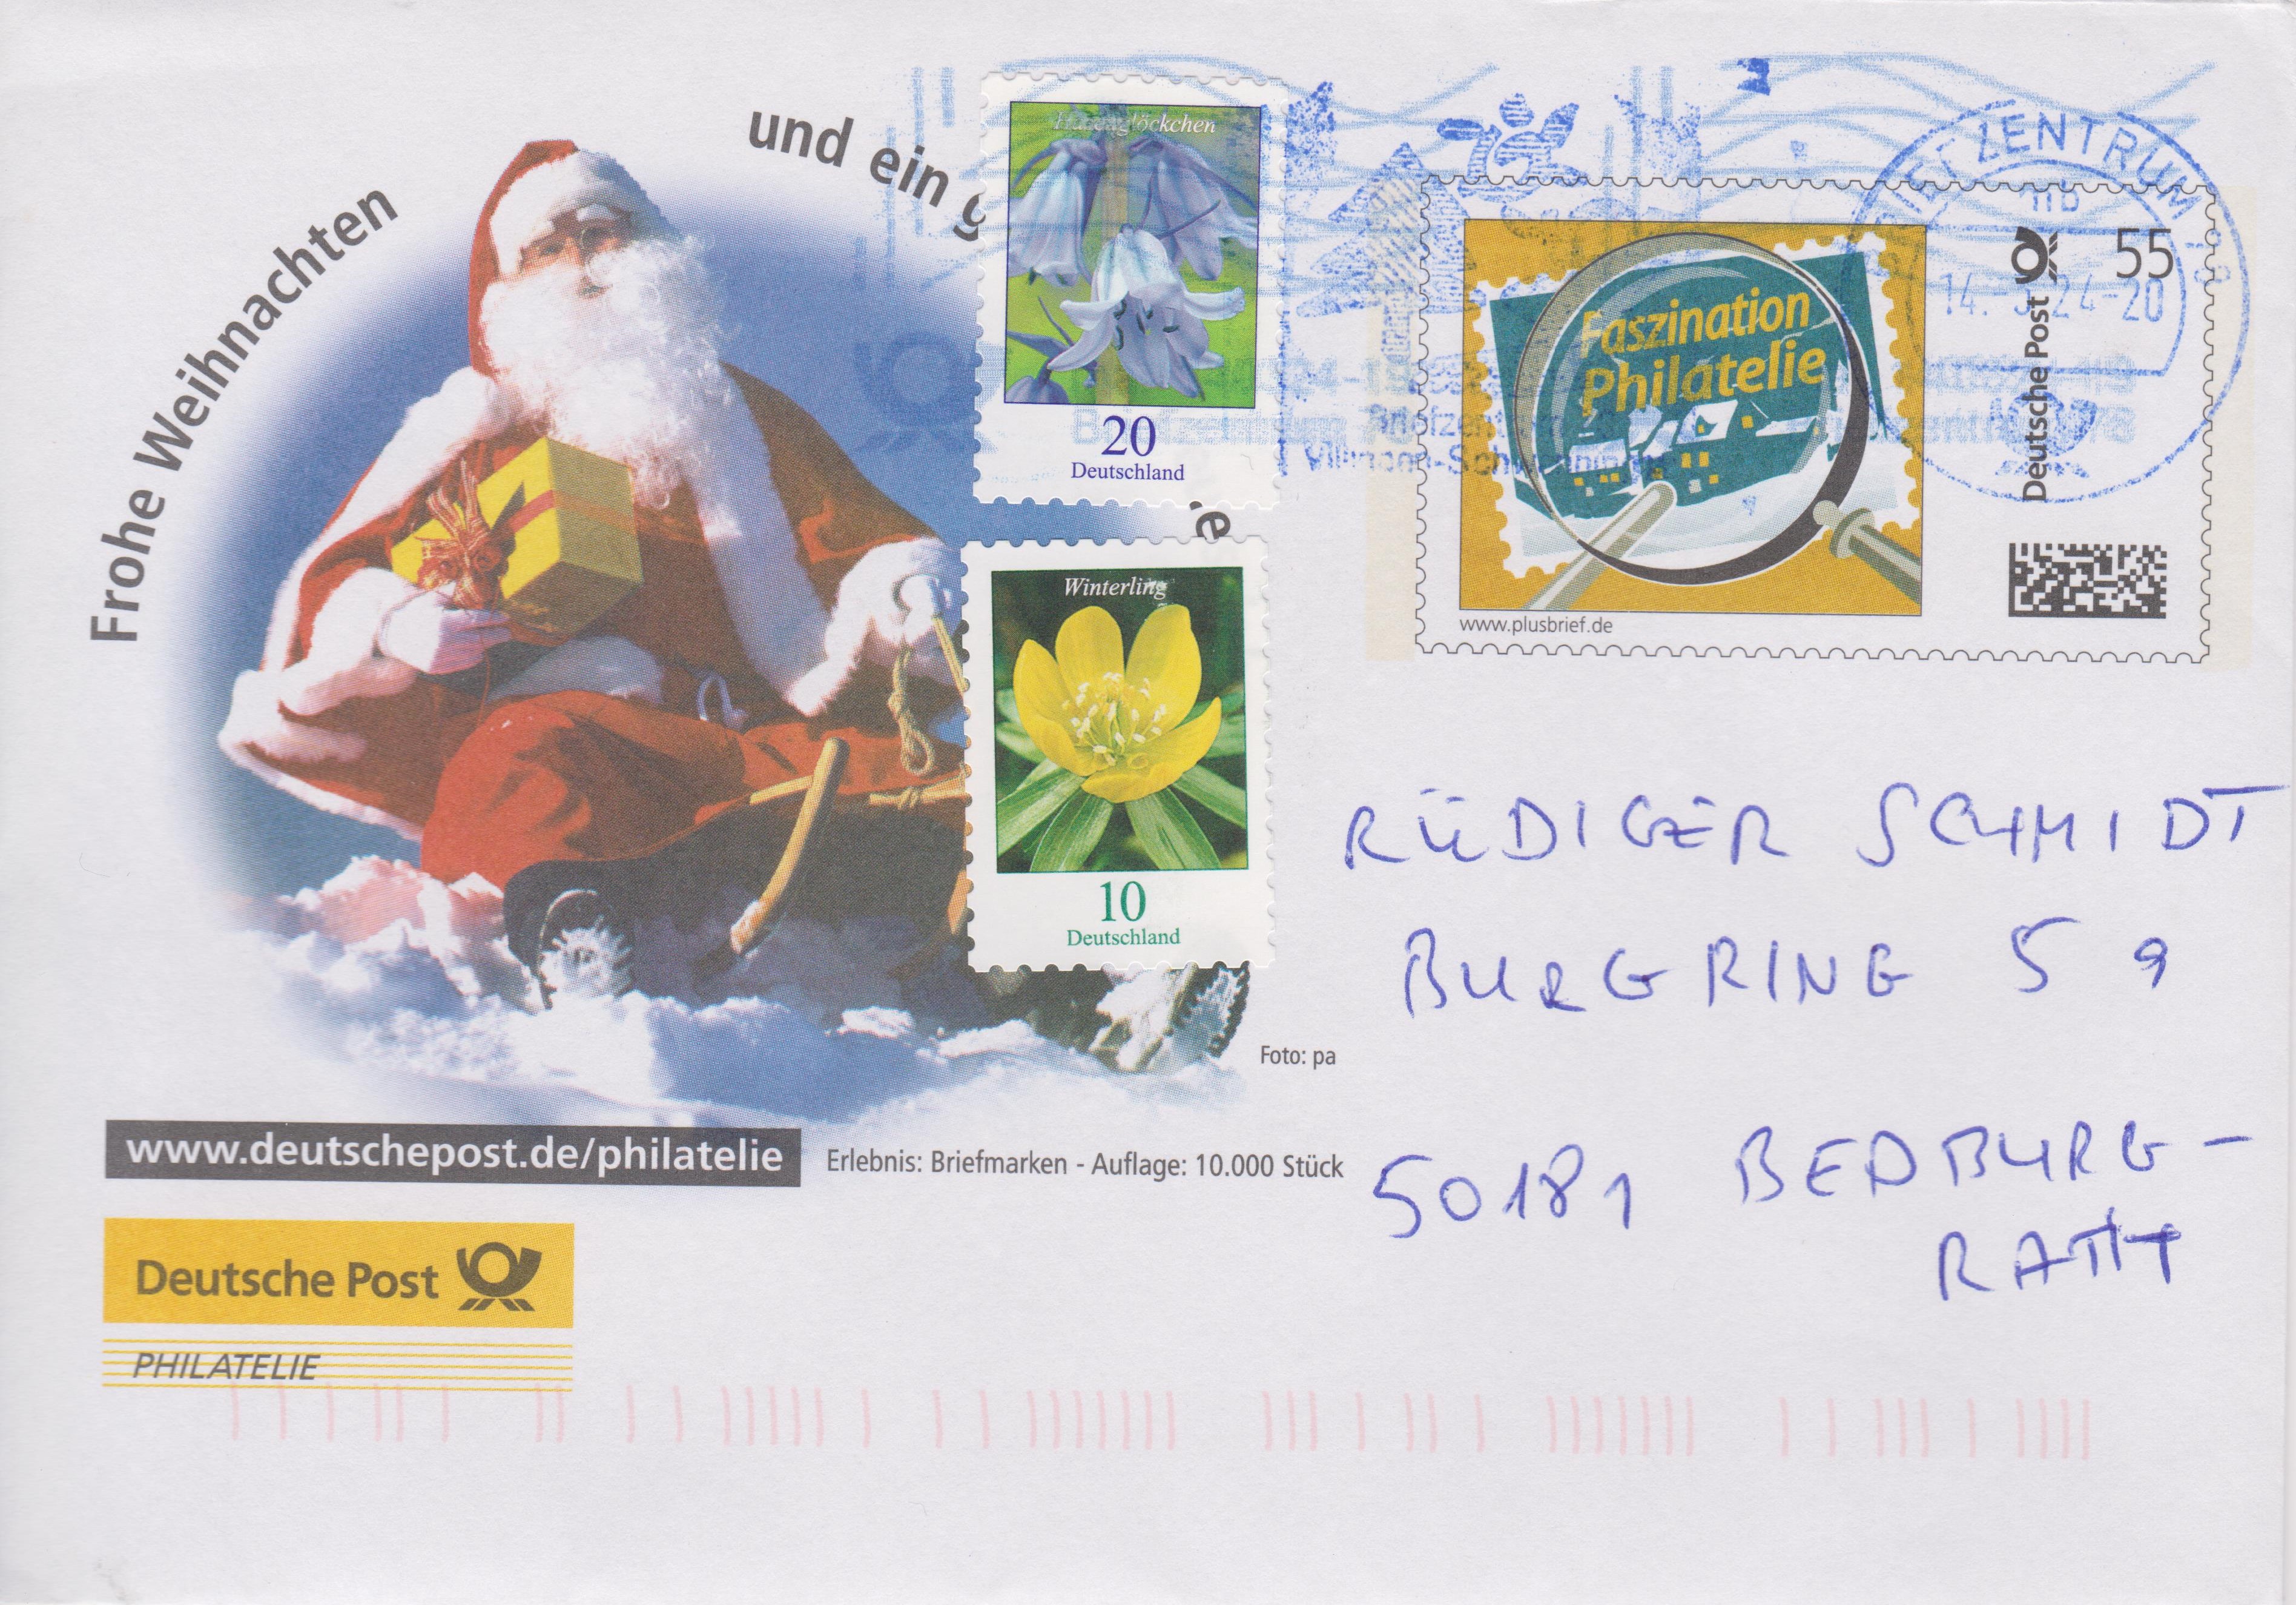 Frohe Weihnachten
und ein g
e
Hasenglöckchen
20
Deutschland
Winterling
10
Deutschland
BRIEFZENTRUM 78
mb
14.-3.24-20
Briefzentrum 78
Villingen-Schwenningen
Faszination
Philatelie
Deutsche Post
55
www.plusbrief.de
RÜDIGER SCHMIDT
BURGRING 59
50181 BEDBURG-
RATH
Foto: pa
www.deutschepost.de/philatelie
Erlebnis: Briefmarken - Auflage: 10.000 Stück
Deutsche Post
PHILATELIE